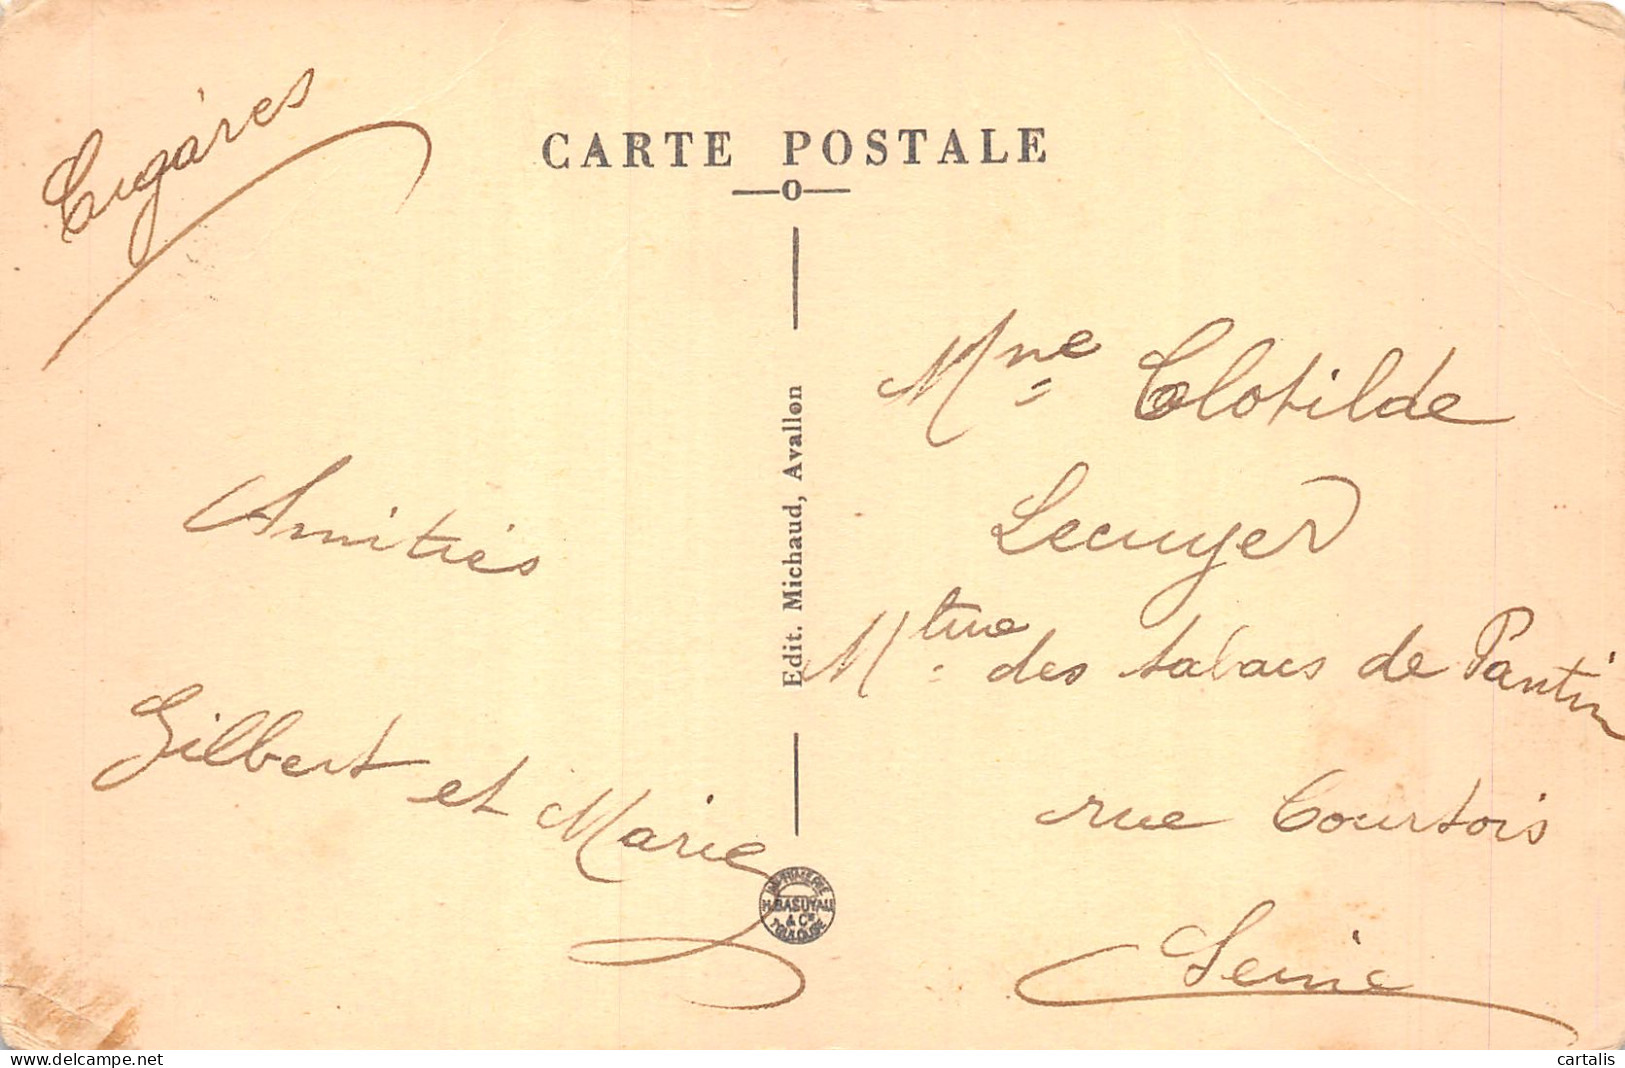 CARTE POSTALE
O
Amitiés
Gilbert et Marie
Edit. Michaud, Avallon
IMPRIMERIE
H. BASUYAU
& Cie
TOULOUSE
Mme Clotilde
Lecuyer
Mture des tabacs de Pantin
rue Courtois
Seine
cartalis